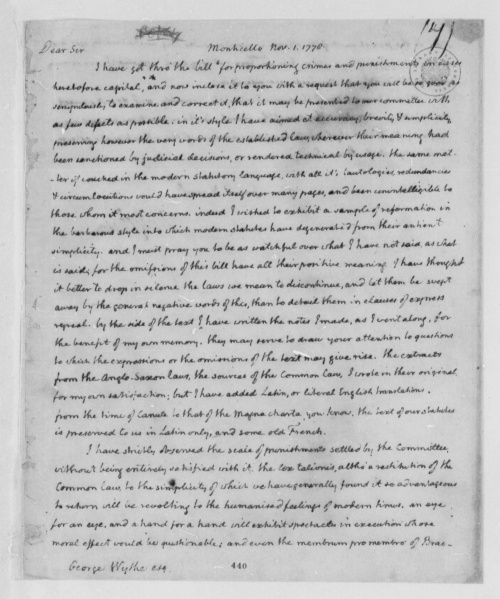 Dear Sir Monticello Nov. 1. 1778
I have got thro' the bill 'for proportioning crimes and punishments in cases
heretofore capital,' and now inclose it to you with a request that you will be so good as
scrupulously to examine and correct it, that it may be presented to our committee with
as few defects as possible. in it's style I have aimed at accuracy, brevity & simplicity,
preserving however the very words of the established law, wherever their meaning had
been sanctioned by judicial decisions, or rendered technical by usage. the same mat-
-ter if couched in the modern statutory language, with all it's tautologies, redundancies
& circumlocutions would have spread itself over many pages, and been unintelligible to
those whom it most concerns. indeed I wished to exhibit a sample of reformation in
the barbarous style into which modern statutes have degenerated from their antient
simplicity. and I must pray you to be as watchful over what I have not said, as what
is said; for the omissions of this bill have all their positive meaning. I have thought
it better to drop in silence the laws we mean to discontinue, and let them be swept
away by the general negative words of this, than to detail them in clauses of express
repeal. by the side of the text I have written the notes I made, as I went along, for
the benefit of my own memory. they may serve to draw your attention to questions
to which the expressions or the omissions of the text may give rise. the extracts
from the Anglo-Saxon laws, the sources of the Common law, I wrote in their original
for my own satisfaction; but I have added Latin, or liberal English translations.
from the time of Canute to that of the Magna charta, you know, the text of our statutes
is preserved to us in Latin only, and some old French.
I have strictly observed the scale of punishments settled by the Committee,
without being entirely satisfied with it. the lex talionis, altho' a restitution of the
Common law, to the simplicity of which we have generally found it so advantageous
to return will be revolting to the humanised feelings of modern times. an eye
for an eye, and a hand for a hand will exhibit spectacles in execution whose
moral effect would be questionable; and even the membrum pro membro of Brac-
George Wythe esq.
440